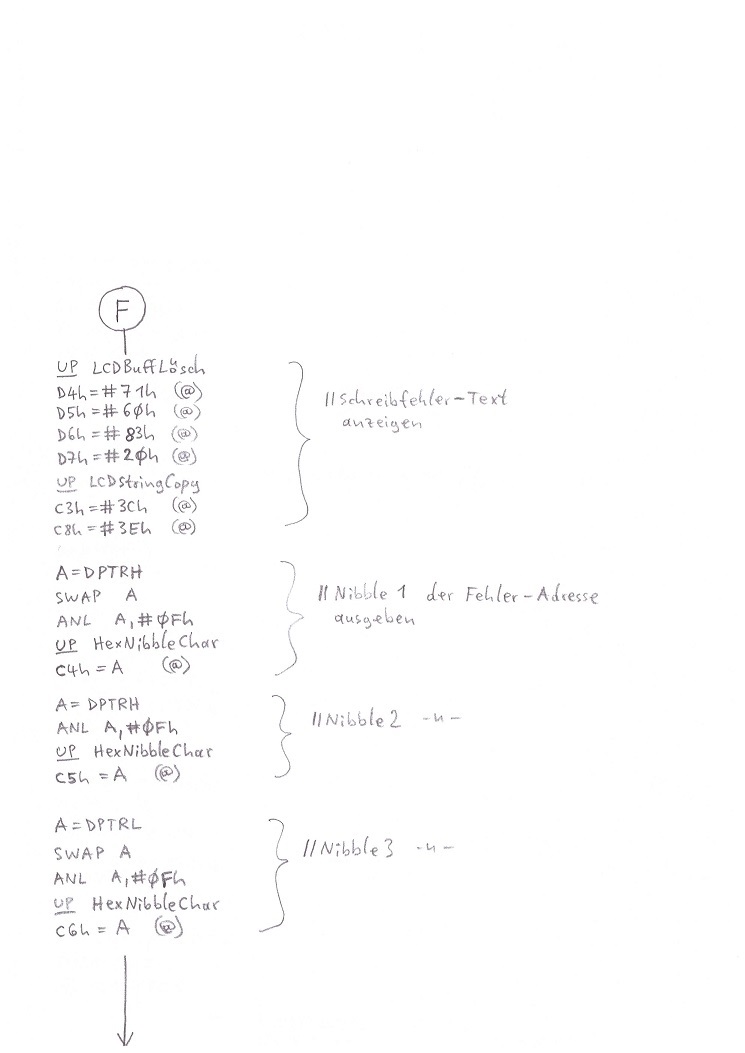 F
UP LCDBuffLösch
D4h=#71h (@)
D5h=#6Øh (@)
D6h=#83h (@)
D7h=#2Øh (@)
UP LCDStringCopy
C3h=#3Ch (@)
C8h=#3Eh (@)
//Schreibfehler-Text
anzeigen
A=DPTRH
SWAP A
ANL A,#ØFh
UP HexNibbleChar
C4h=A (@)
//Nibble 1 der Fehler-Adresse
ausgeben
A=DPTRH
ANL A,#ØFh
UP HexNibbleChar
C5h=A (@)
//Nibble2 -"-
A=DPTRL
SWAP A
ANL A,#ØFh
UP HexNibbleChar
C6h=A (@)
//Nibble3 -"-